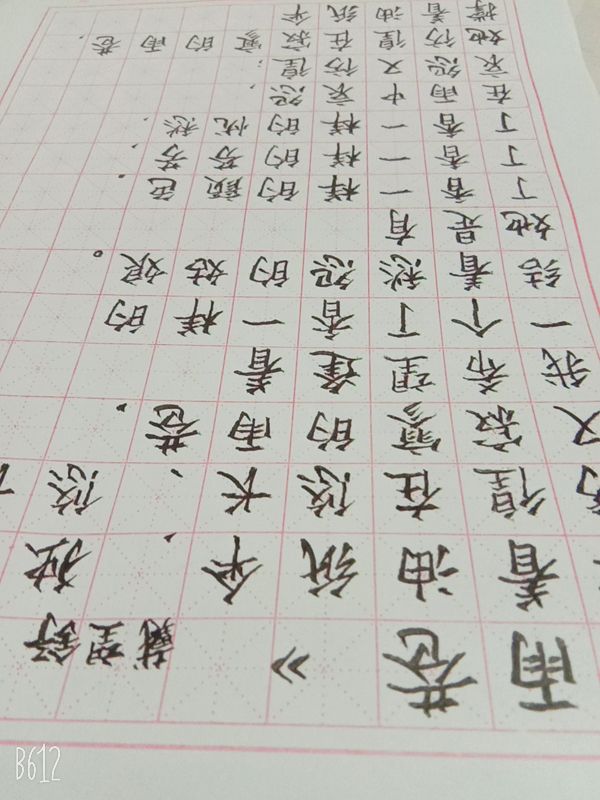 雨巷》 戴望舒
着油纸伞，独
徨在悠长、悠
又寂寥的雨巷，
我希望逢着
一个丁香一样的
结着愁怨的姑娘。
她是有
丁香一样的颜色，
丁香一样的芬芳，
丁香一样的忧愁，
在雨中哀怨，
哀怨又彷徨；
她彷徨在寂寥的雨巷
撑着油纸伞
B612